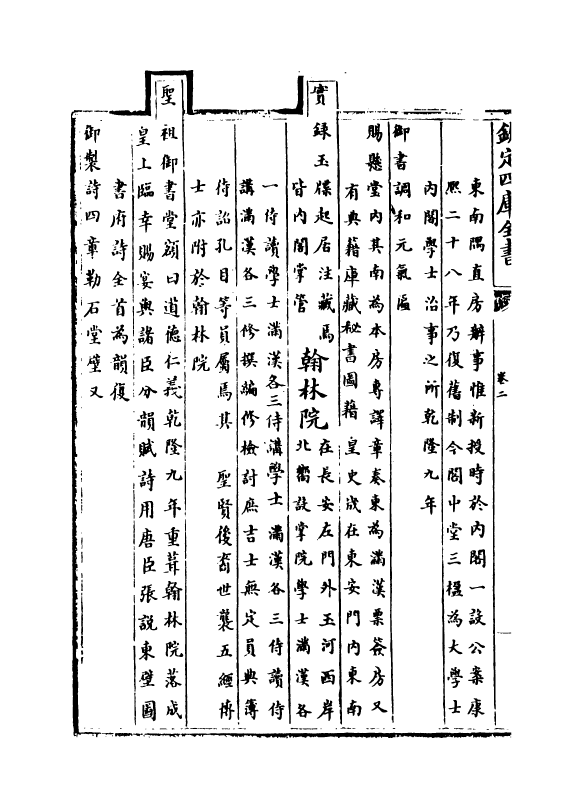 欽定四庫全書
卷二
東南隅直房辦事惟新授時於內閣一設公案康
熙二十八年乃復舊制今閣中堂三楹為大學士
內閣學士治事之所乾隆九年
御書調和元氣匾
賜懸堂內其南為本房專譯章奏東為滿漢票簽房又
有典藉庫藏秘書圖籍
皇史宬在東安門內東南
實錄玉牒起居注藏焉
翰林院
在長安左門外玉河西岸
皆內閣掌管
北嚮設掌院學士滿漢各
一侍讀學士滿漢各三侍講學士滿漢各三侍讀侍
講滿漢各三修撰編修檢討庶吉士無定員典簿
侍詔孔目等員屬焉其
聖賢後裔世襲五經博
士亦附於翰林院
聖祖御書堂額曰道德仁義乾隆九年重葺翰林院落成
皇上臨幸賜宴與諸臣分韻賦詩用唐臣張說東壁圖
書府詩全首為韻復
御製詩四章勒石堂壁又